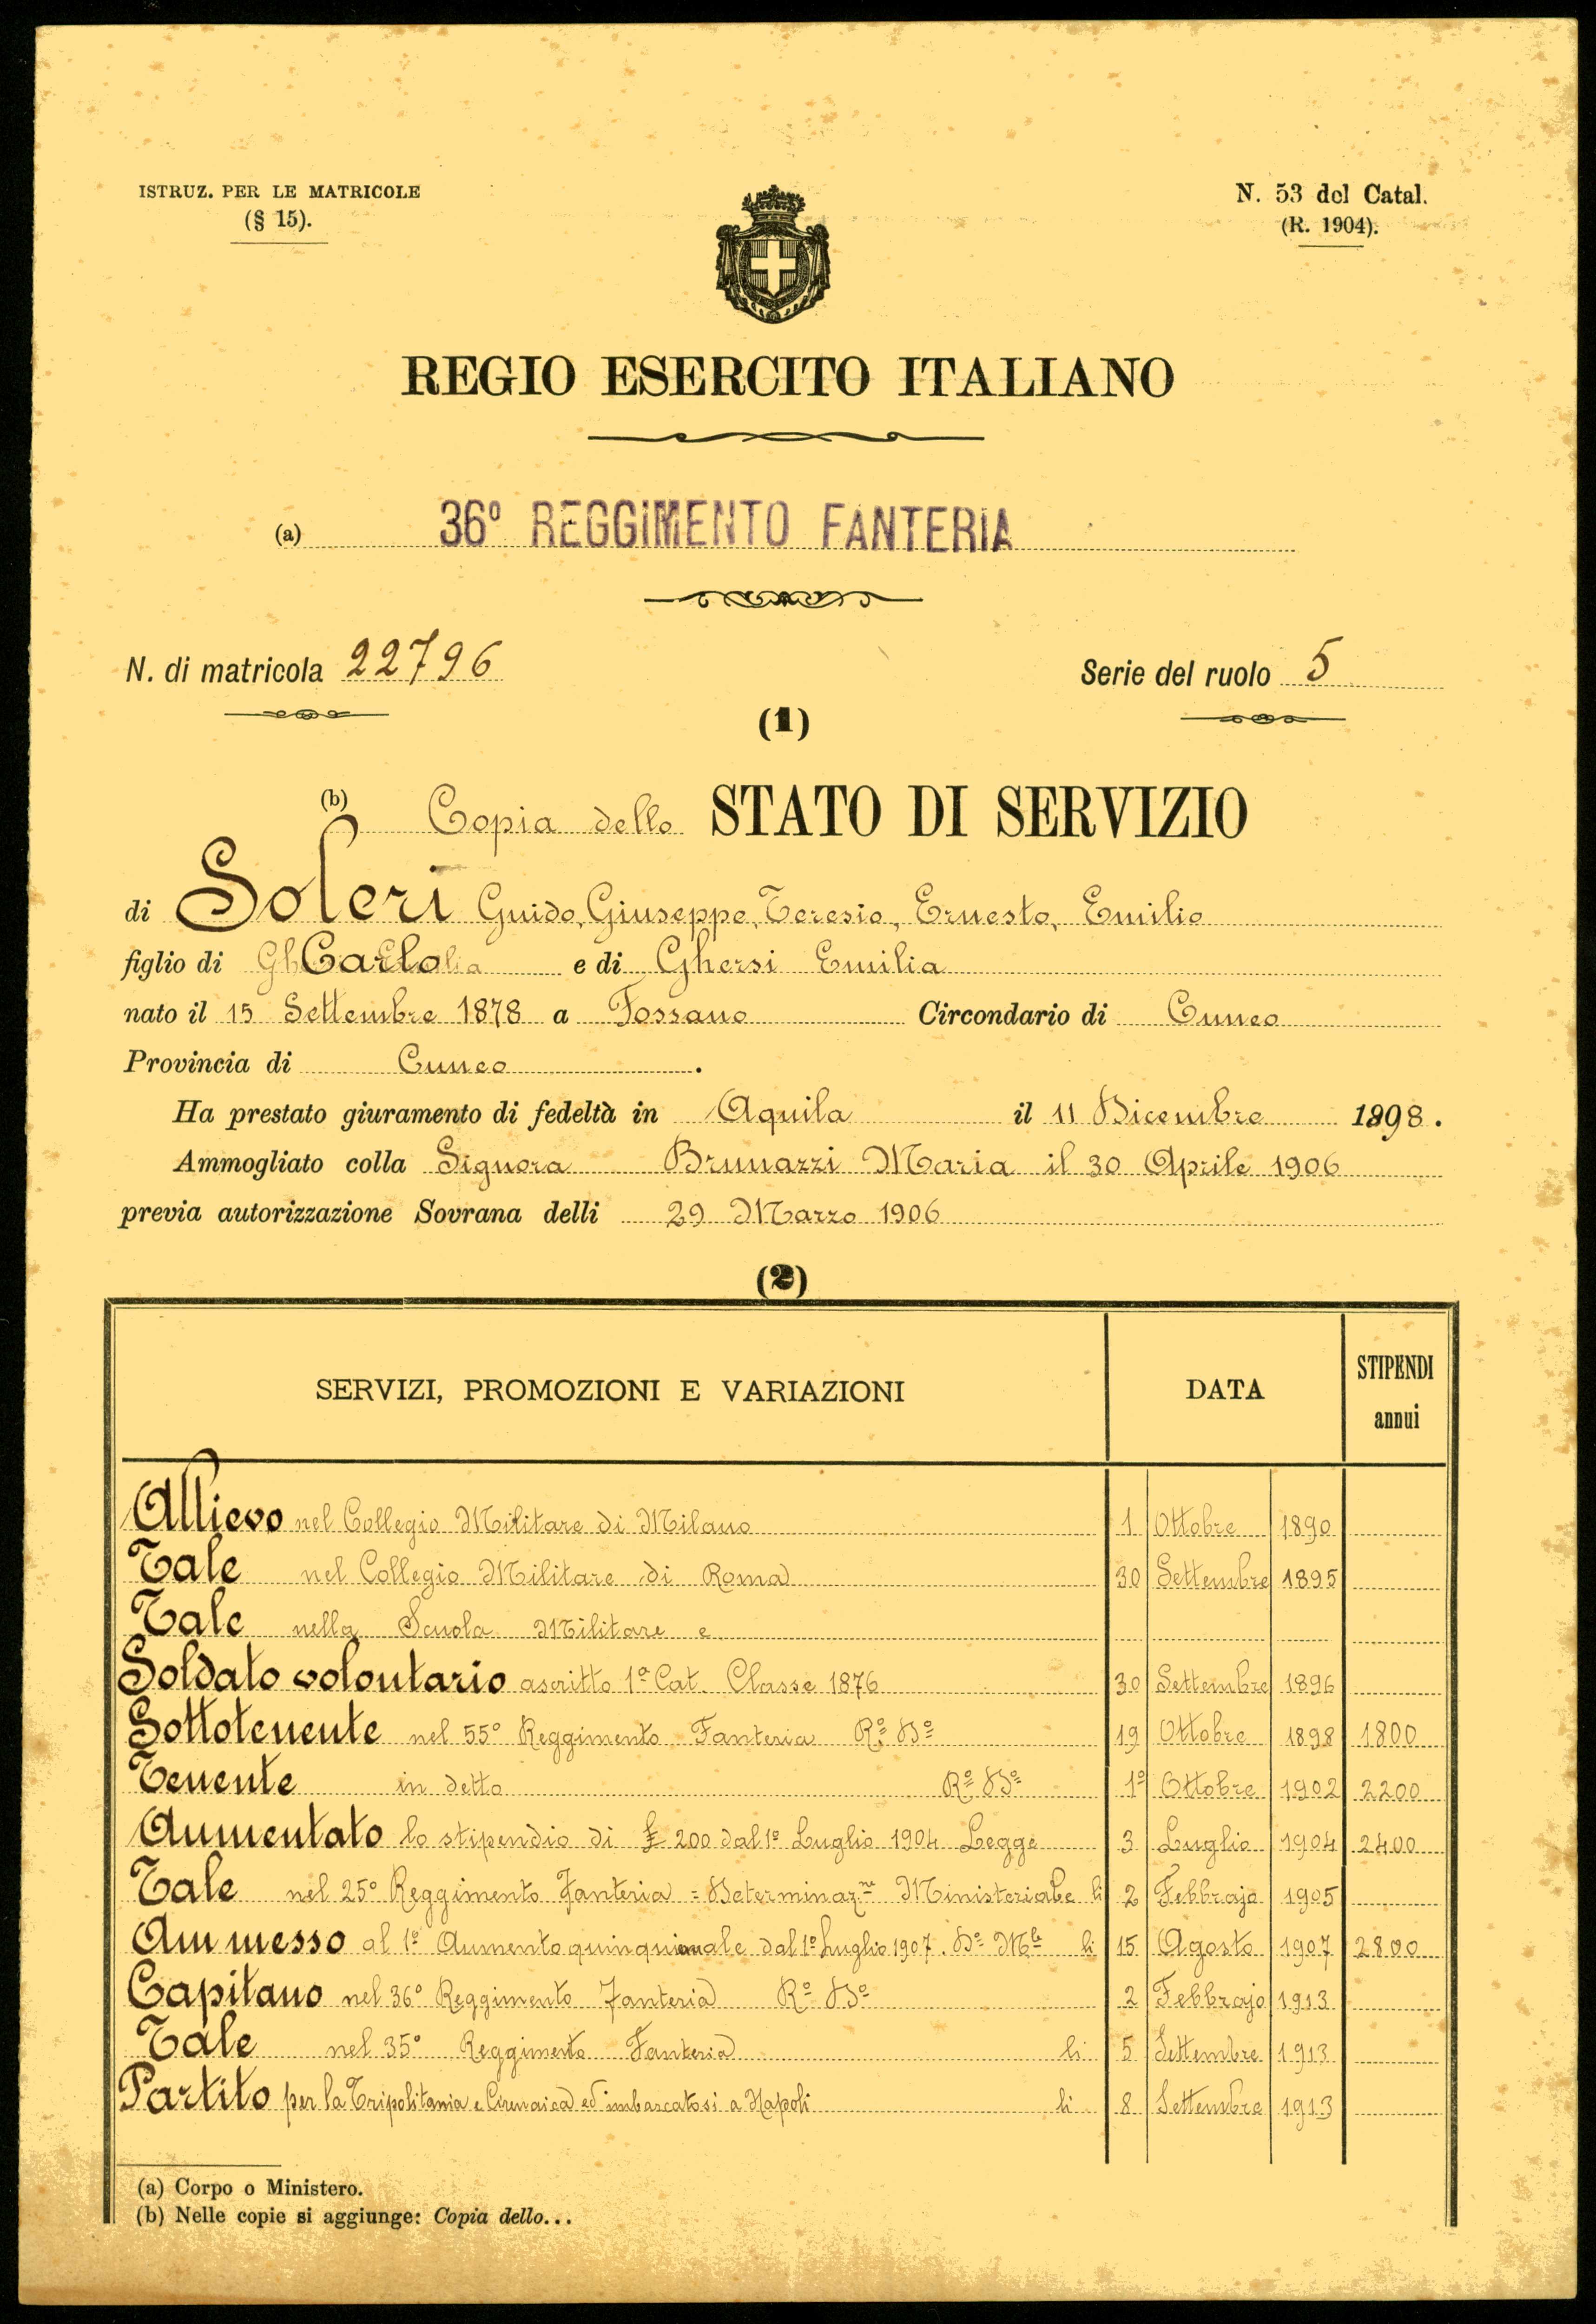 ISTRUZ. PER LE MATRICOLE
(§ 15).
N. 53 del Catal.
(R. 1904).
REGIO ESERCITO ITALIANO
(a) 36º REGGIMENTO FANTERIA
N. di matricola 22796
Serie del ruolo 5
(1)
(b) Copia dello STATO DI SERVIZIO
di Soleri Guido, Giuseppe, Teresio, Ernesto, Emilio
figlio di Carlo e di Ghersi Emilia
nato il 15 Settembre 1878 a Fossano Circondario di Cuneo
Provincia di Cuneo.
Ha prestato giuramento di fedeltà in Aquila il 11 Dicembre 1898.
Ammogliato colla Signora Brunazzi Maria il 30 Aprile 1906
previa autorizzazione Sovrana delli 29 Marzo 1906
(2)
SERVIZI, PROMOZIONI E VARIAZIONI DATA STIPENDI annui
Allievo nel Collegio Militare di Milano 1 Ottobre 1890
Tale nel Collegio Militare di Roma 30 Settembre 1895
Tale nella Scuola Militare e
Soldato volontario ascritto 1ª Cat. Classe 1876 30 Settembre 1896
Sottotenente nel 55º Reggimento Fanteria Rº Dº 19 Ottobre 1898 1800
Tenente in detto Rº Dº 1º Ottobre 1902 2200
Aumentato lo stipendio di £ 200 dal 1º Luglio 1904 Legge 3 Luglio 1904 2400
Tale nel 25º Reggimento Fanteria = Determinazne Ministeriale li 2 Febbrajo 1905
Ammesso al 1º Aumento quinquennale dal 1º Luglio 1907. Dº Mle li 15 Agosto 1907 2800
Capitano nel 36º Reggimento Fanteria Rº Dº 2 Febbrajo 1913
Tale nel 35º Reggimento Fanteria li 5 Settembre 1913
Partito per la Tripolitania e Cirenaica ed imbarcatosi a Napoli li 8 Settembre 1913
(a) Corpo o Ministero.
(b) Nelle copie si aggiunge: Copia dello...